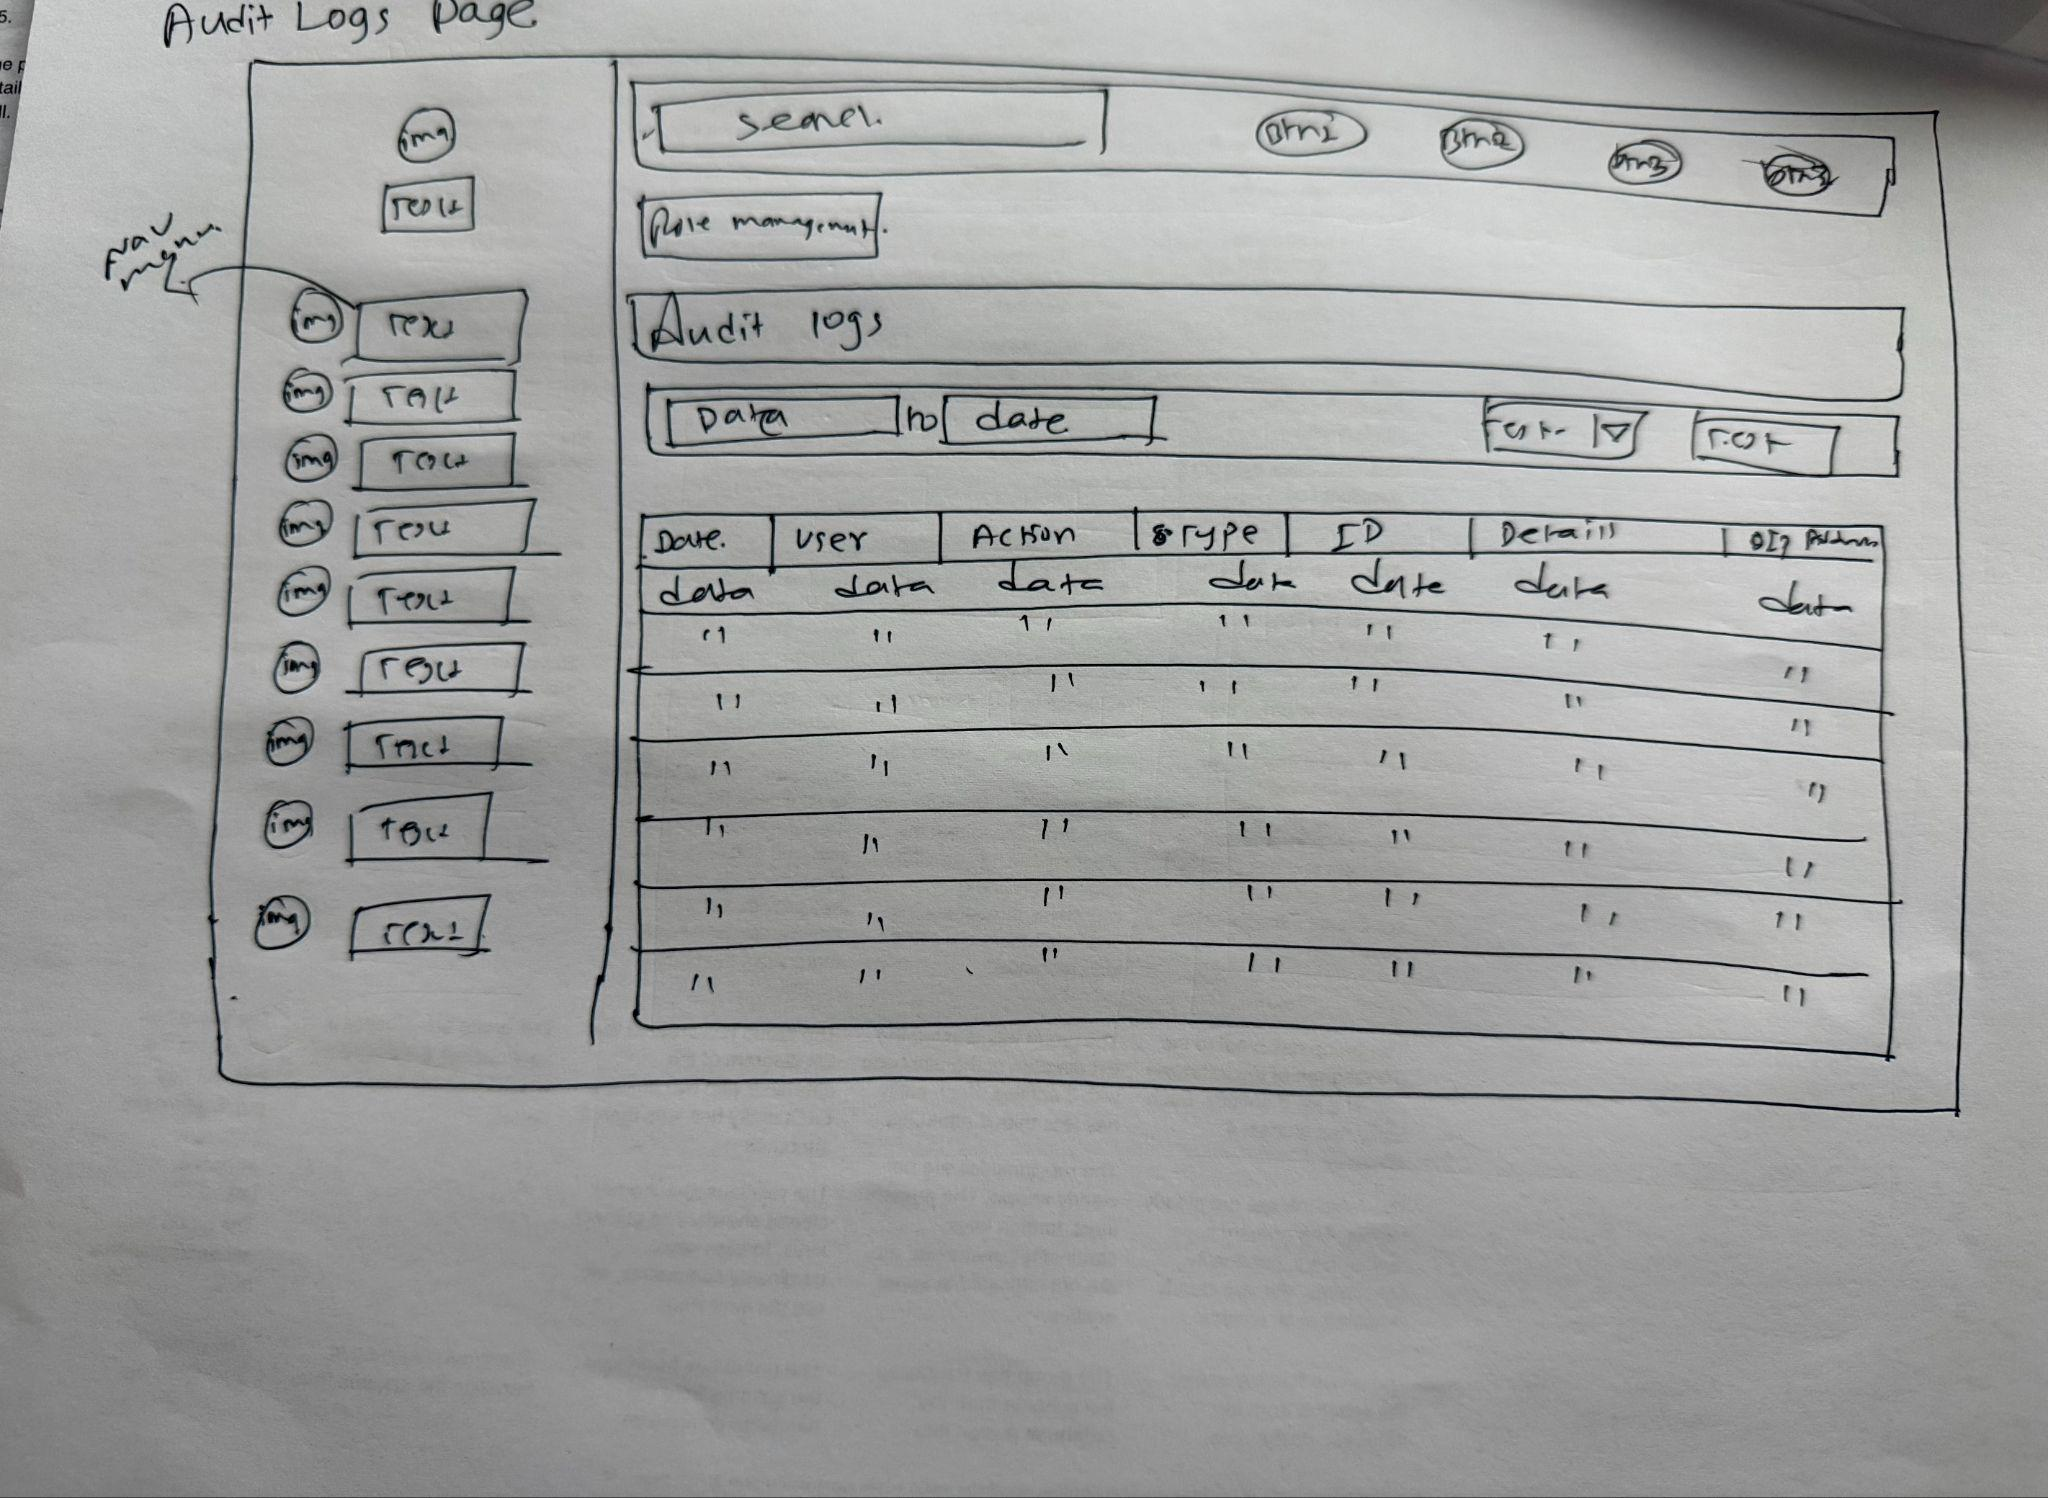 5.
tail
ll.
Audit Logs page
nav
menu
img
Text
img Text
img Text
img Text
img Text
img Text
img Text
img Text
img text
img Text
Search.
Btn1 Btn2 btn3
Role management.
Audit logs
Data to date
Text Text
Date. User Action Type ID Details Address
data data data data date data data
" " " " " " "
" " " " " " "
" " " " " " "
" " " " " " "
" " " " " " "
" " " " " " "